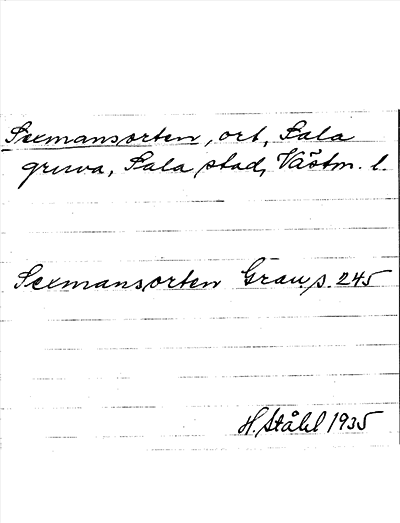 Sexmansorten, ort, Sala
gruva, Sala stad, Västm. l.
Sexmansorten Grau s. 245
H. Ståhl 1935